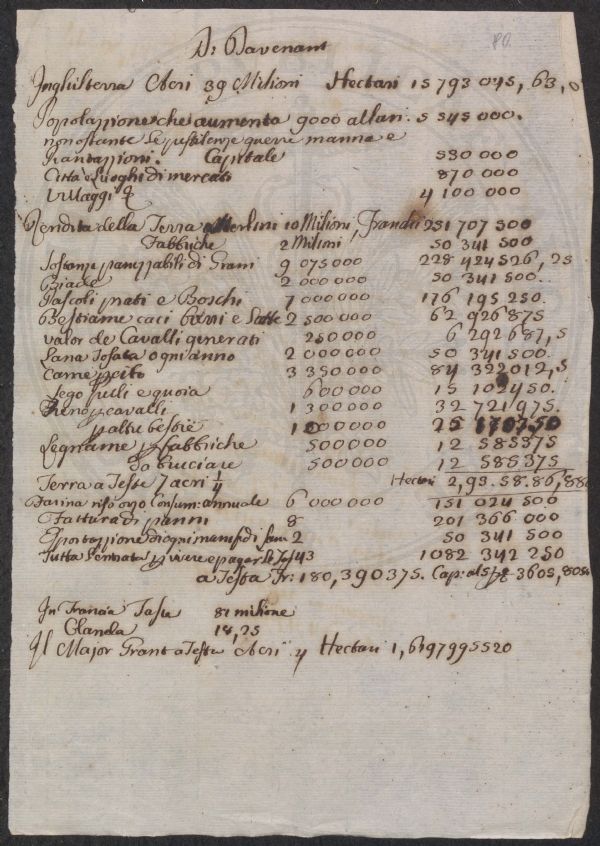 D: Davenant
80
Inghilterra Acri 39 Milioni Hectari 15 793 045, 63,0
Popolazione che aumenta 9000 all'an: 5 545 000.
non ostante le pestilenze guerre marina e
Piantazioni. Capitale 530 000
Città e Luoghi di mercati 870 000
Villaggi 4 100 000
Rendita della Terra Sterlini 10 Milioni, Franchi 251 707 500
Fabbriche 2 Milioni 50 341 500
Sostanze panizzabili di Grani 9 075 000 228 424 526, 25
Biade 2 000 000 50 341 500.
Pascoli prati e Boschi 7 000 000 176 195 250.
Bestiame caci burri e Latte 2 500 000 62 926 875
valor de Cavalli generati 250 000 6 292 687, 5
Lana Tosata ogni anno 2 000 000 50 341 500.
Carne 3 350 000 84 322 012, 5
sego pelli e quoia 600 000 15 102 450.
Fieno p cavalli 1 300 000 32 721 975.
p altre bestie 1 000 000 25 170 750
Legname p fabbriche 500 000 12 585 375
da bruciare 500 000 12 585 375
Terra a Teste 7 acri 1/4 Hectari 2, 93. 58. 86, 88
Farina riso orzo Consum: annuale 6 000 000 151 024 500
Fattura di panni 8 201 366 000
Esportazione di ogni manif: di Lana 2 50 341 500
Tutta l'entrata p vivere e pagar le 43 1082 342 250
a Testa Fr: 180, 390375. Cap: al 5 p 3605, 80
In Francia Teste 81 milione
Olanda 18, 25
Il Major Grant a Testa Acri 4 Hectari 1, 6197995520